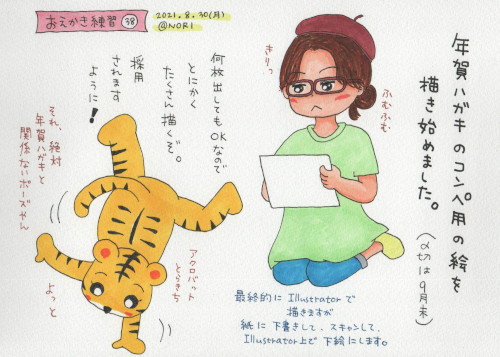 おえかき練習 38
2021.8.30(月)
@NORI
年賀ハガキのコンペ用の絵を
描き始めました。
(〆切は9月末)
きりっ
ふむふむ
何枚出してもOKなので
とにかく
たくさん描くぞ。
採用
されます
ように!
それ、絶対
年賀ハガキと
関係ないポーズやん
アクロバット
とらきち
よっと
最終的にIllustratorで
描きますが
紙に下書きして、スキャンして、
Illustrator上で下絵にします。